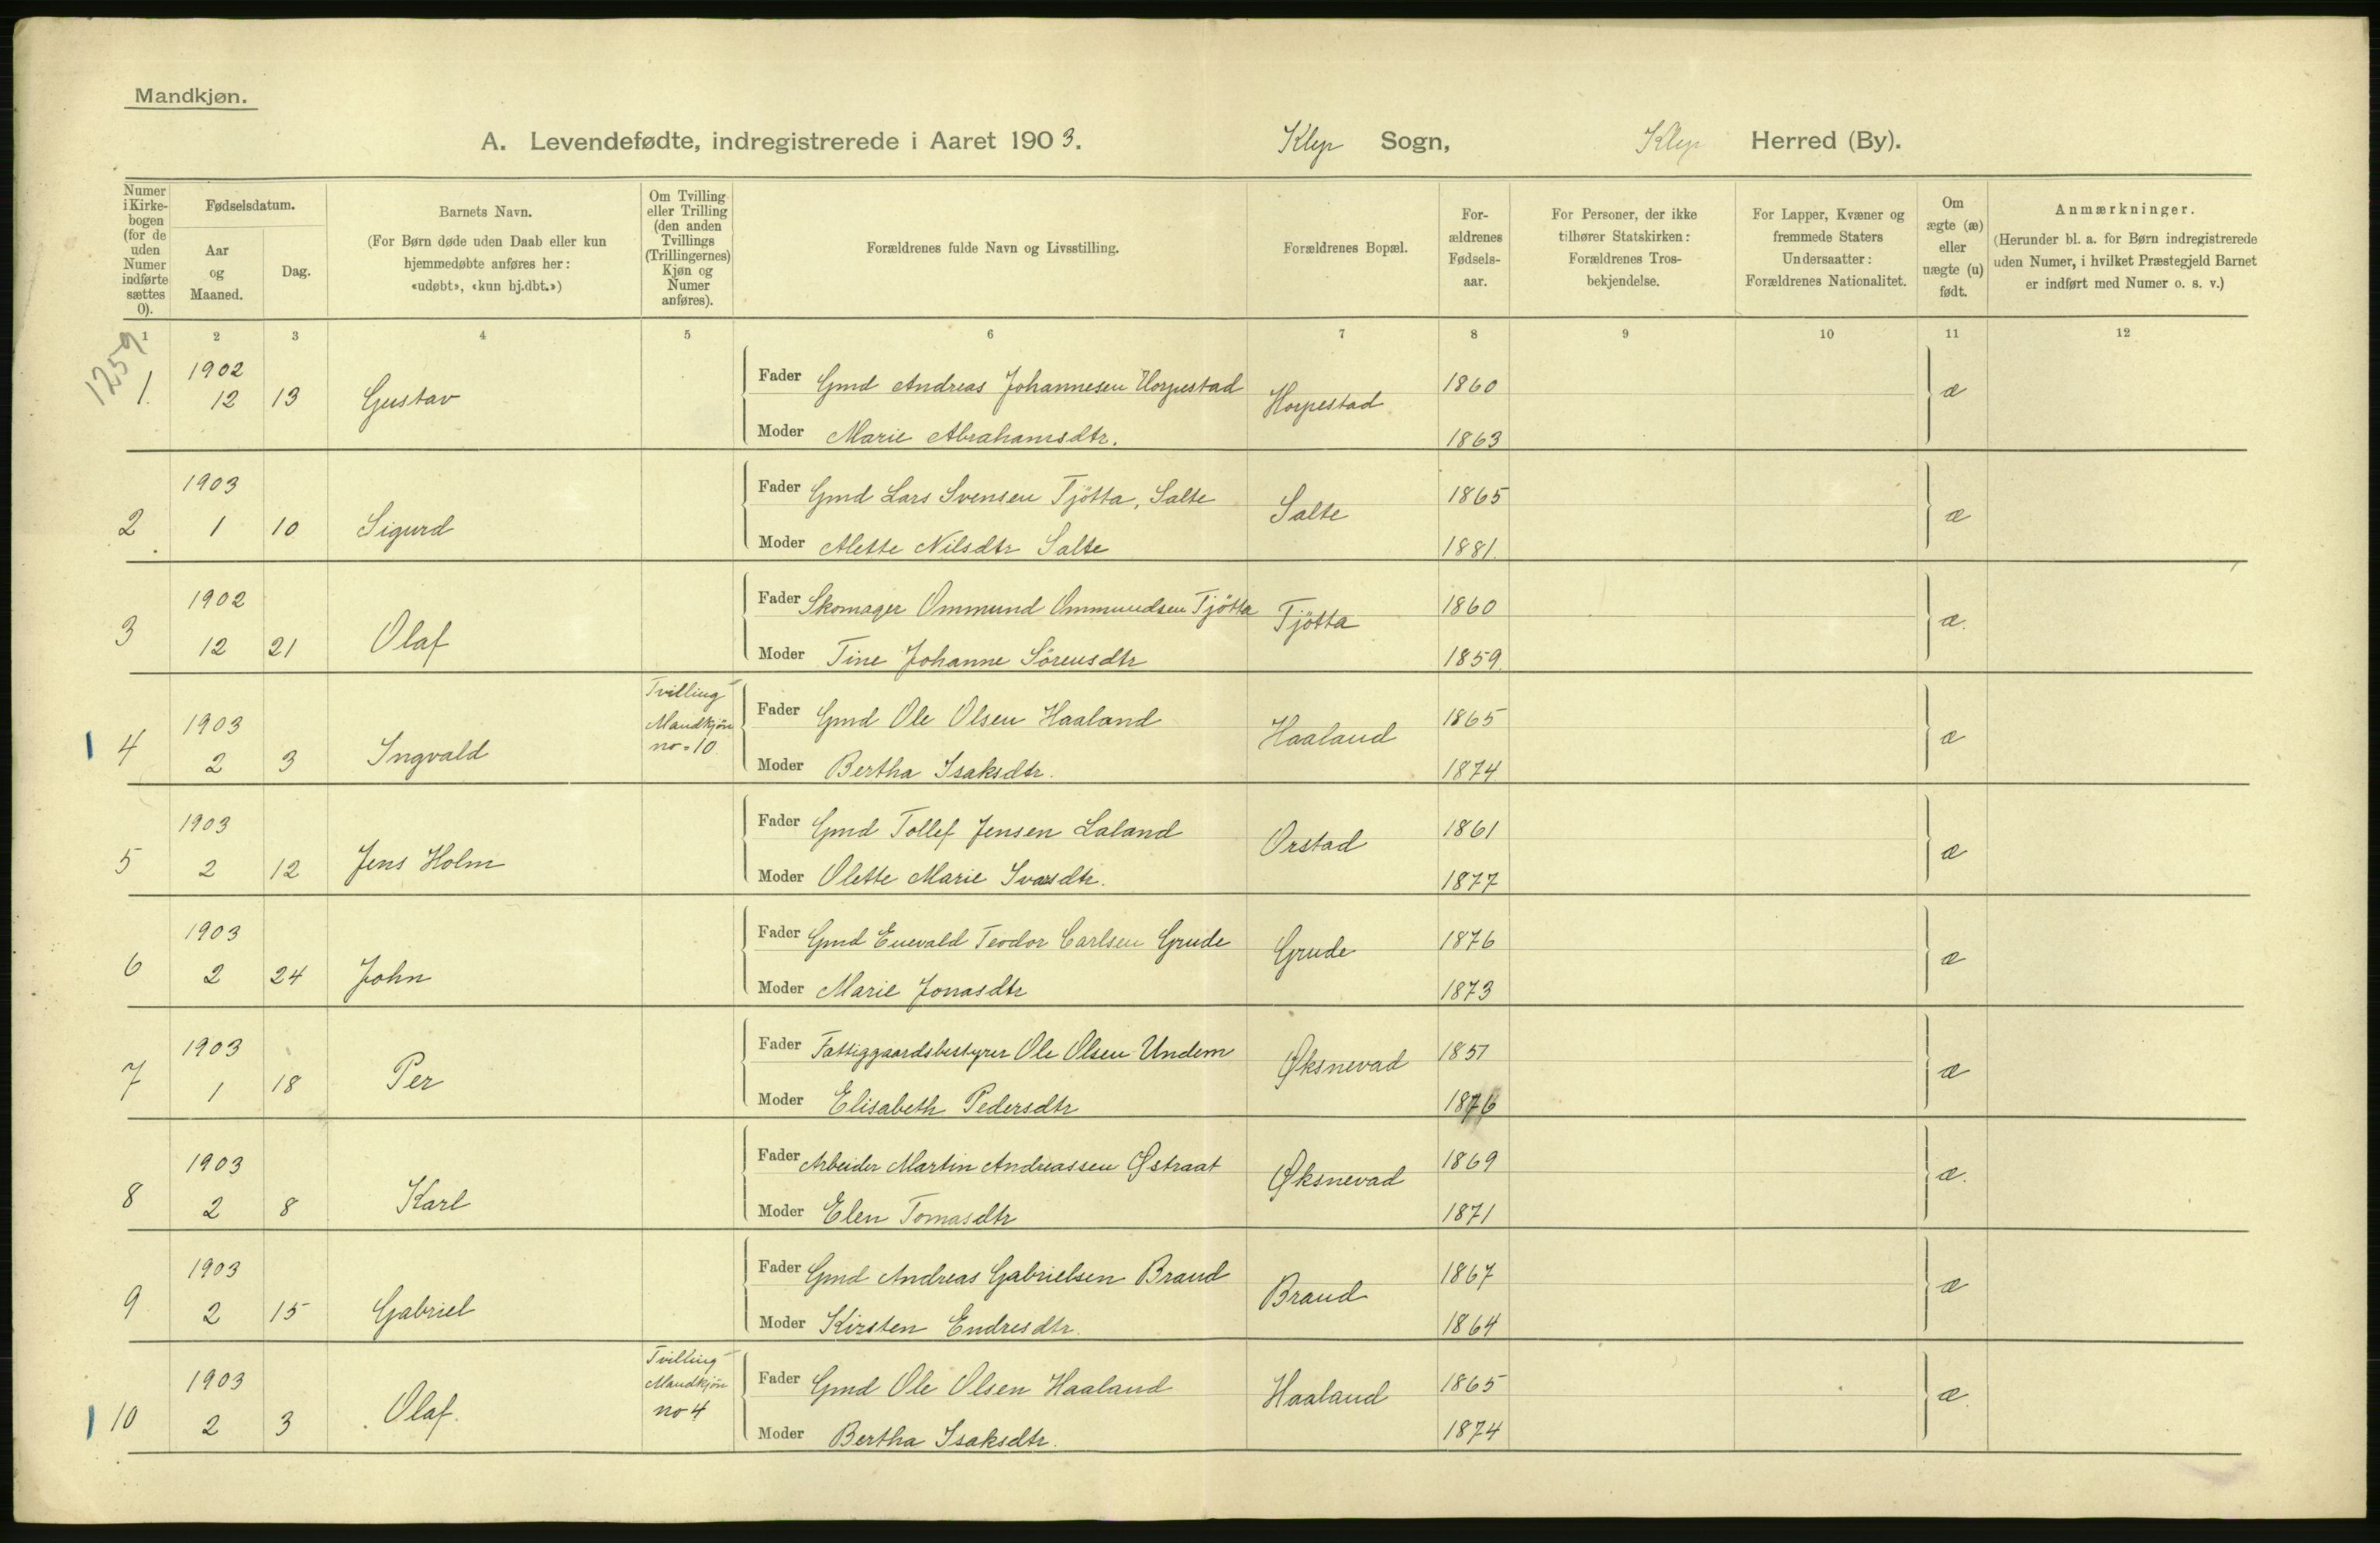 Mandkjøn.
A. Levendefødte, indregistrerede i Aaret 1903. Klep Sogn, Klep Herred (By).
Numer i Kirke-bogen (for de uden Numer indførte sættes 0).
Fødselsdatum.
Aar og Maaned.
Dag.
Barnets Navn.
(For Børn døde uden Daab eller kun hjemmedøbte anføres her: «udøbt», «kun hj.dbt.»)
Om Tvilling eller Trilling (den anden Tvillings (Trillingernes) Kjøn og Numer anføres).
Forældrenes fulde Navn og Livsstilling.
Forældrenes Bopæl.
For-ældrenes Fødsels-aar.
For Personer, der ikke tilhører Statskirken: Forældrenes Tros-bekjendelse.
For Lapper, Kvæner og fremmede Staters Undersaatter: Forældrenes Nationalitet.
Om ægte (æ) eller uægte (u) født.
Anmærkninger.
(Herunder bl. a. for Børn indregistrerede uden Numer, i hvilket Præstegjeld Barnet er indført med Numer o. s. v.)
1 2 3 4 5 6 7 8 9 10 11 12
1259
1902 Fader Gmd Andreas Johannesen Horpestad 1860
1. 12 13 Gustav Horpestad æ
Moder Marie Abrahamsdtr. 1863
1903 Fader Gmd Lars Svensen Tjötta, Salte 1865
2 1 10 Sigurd Salte æ
Moder Alette Nilsdtr Salte 1881.
1902 Fader Skomager Ommund Ommundsen Tjötta 1860
3 12 21 Olaf Tjötta æ.
Moder Tine Johanne Sörensdtr 1859.
Tvilling
1903 Mandkjön Fader Gmd Ole Olsen Haaland 1865
4 2 3 Ingvald no=10 Haaland æ
Moder Bertha Isaksdtr. 1874
1903 Fader Gmd Tollef Jensen Laland 1861
5 2 12 Jens Holm Orstad æ
Moder Olette Marie Ivarsdtr. 1877
1903 Fader Gmd Enevald Teodor Carlsen Grude 1876
6 2 24 John Grude æ
Moder Marie Jonasdtr 1873
1903 Fader Fattiggaardsbestyrer Ole Olsen Undem 1857
7 1 18 Per Øksnevad æ
Moder Elisabeth Pedersdtr 1876
1903 Fader Arbeider Martin Andreassen Østraat 1869
8 2 8 Karl Øksnevad æ.
Moder Elen Tomasdtr 1871
1903 Fader Gmd Andreas Gabrielsen Braud 1867
9 2 15 Gabriel Braud æ
Moder Kirsten Endresdtr. 1864
Tvilling
1903 Mandkjön Fader Gmd Ole Olsen Haaland 1865
10 2 3 Olaf. no 4 Haaland æ.
Moder Bertha Isaksdtr. 1874